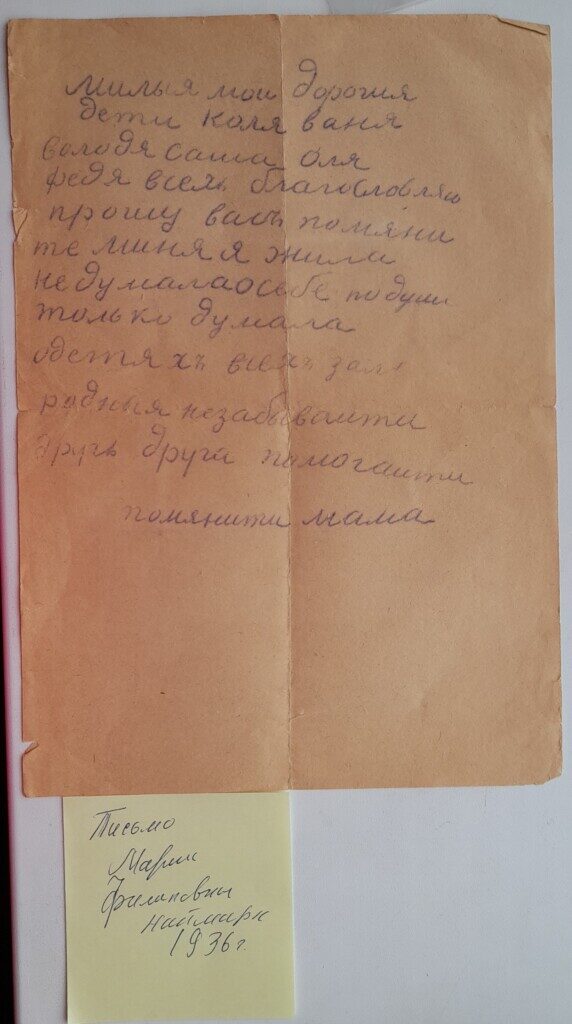 милыя мои дорогия
дети коля ваня
володя саша оля
федя всехъ благословляю
прошу васъ помяни
те миня я жили
не думала о себе
только думала
одетяхъ всехъ
родныя незабываити
другъ друга помогаити
помянити мама
Письмо
Марии
Филиповны
1936 г.